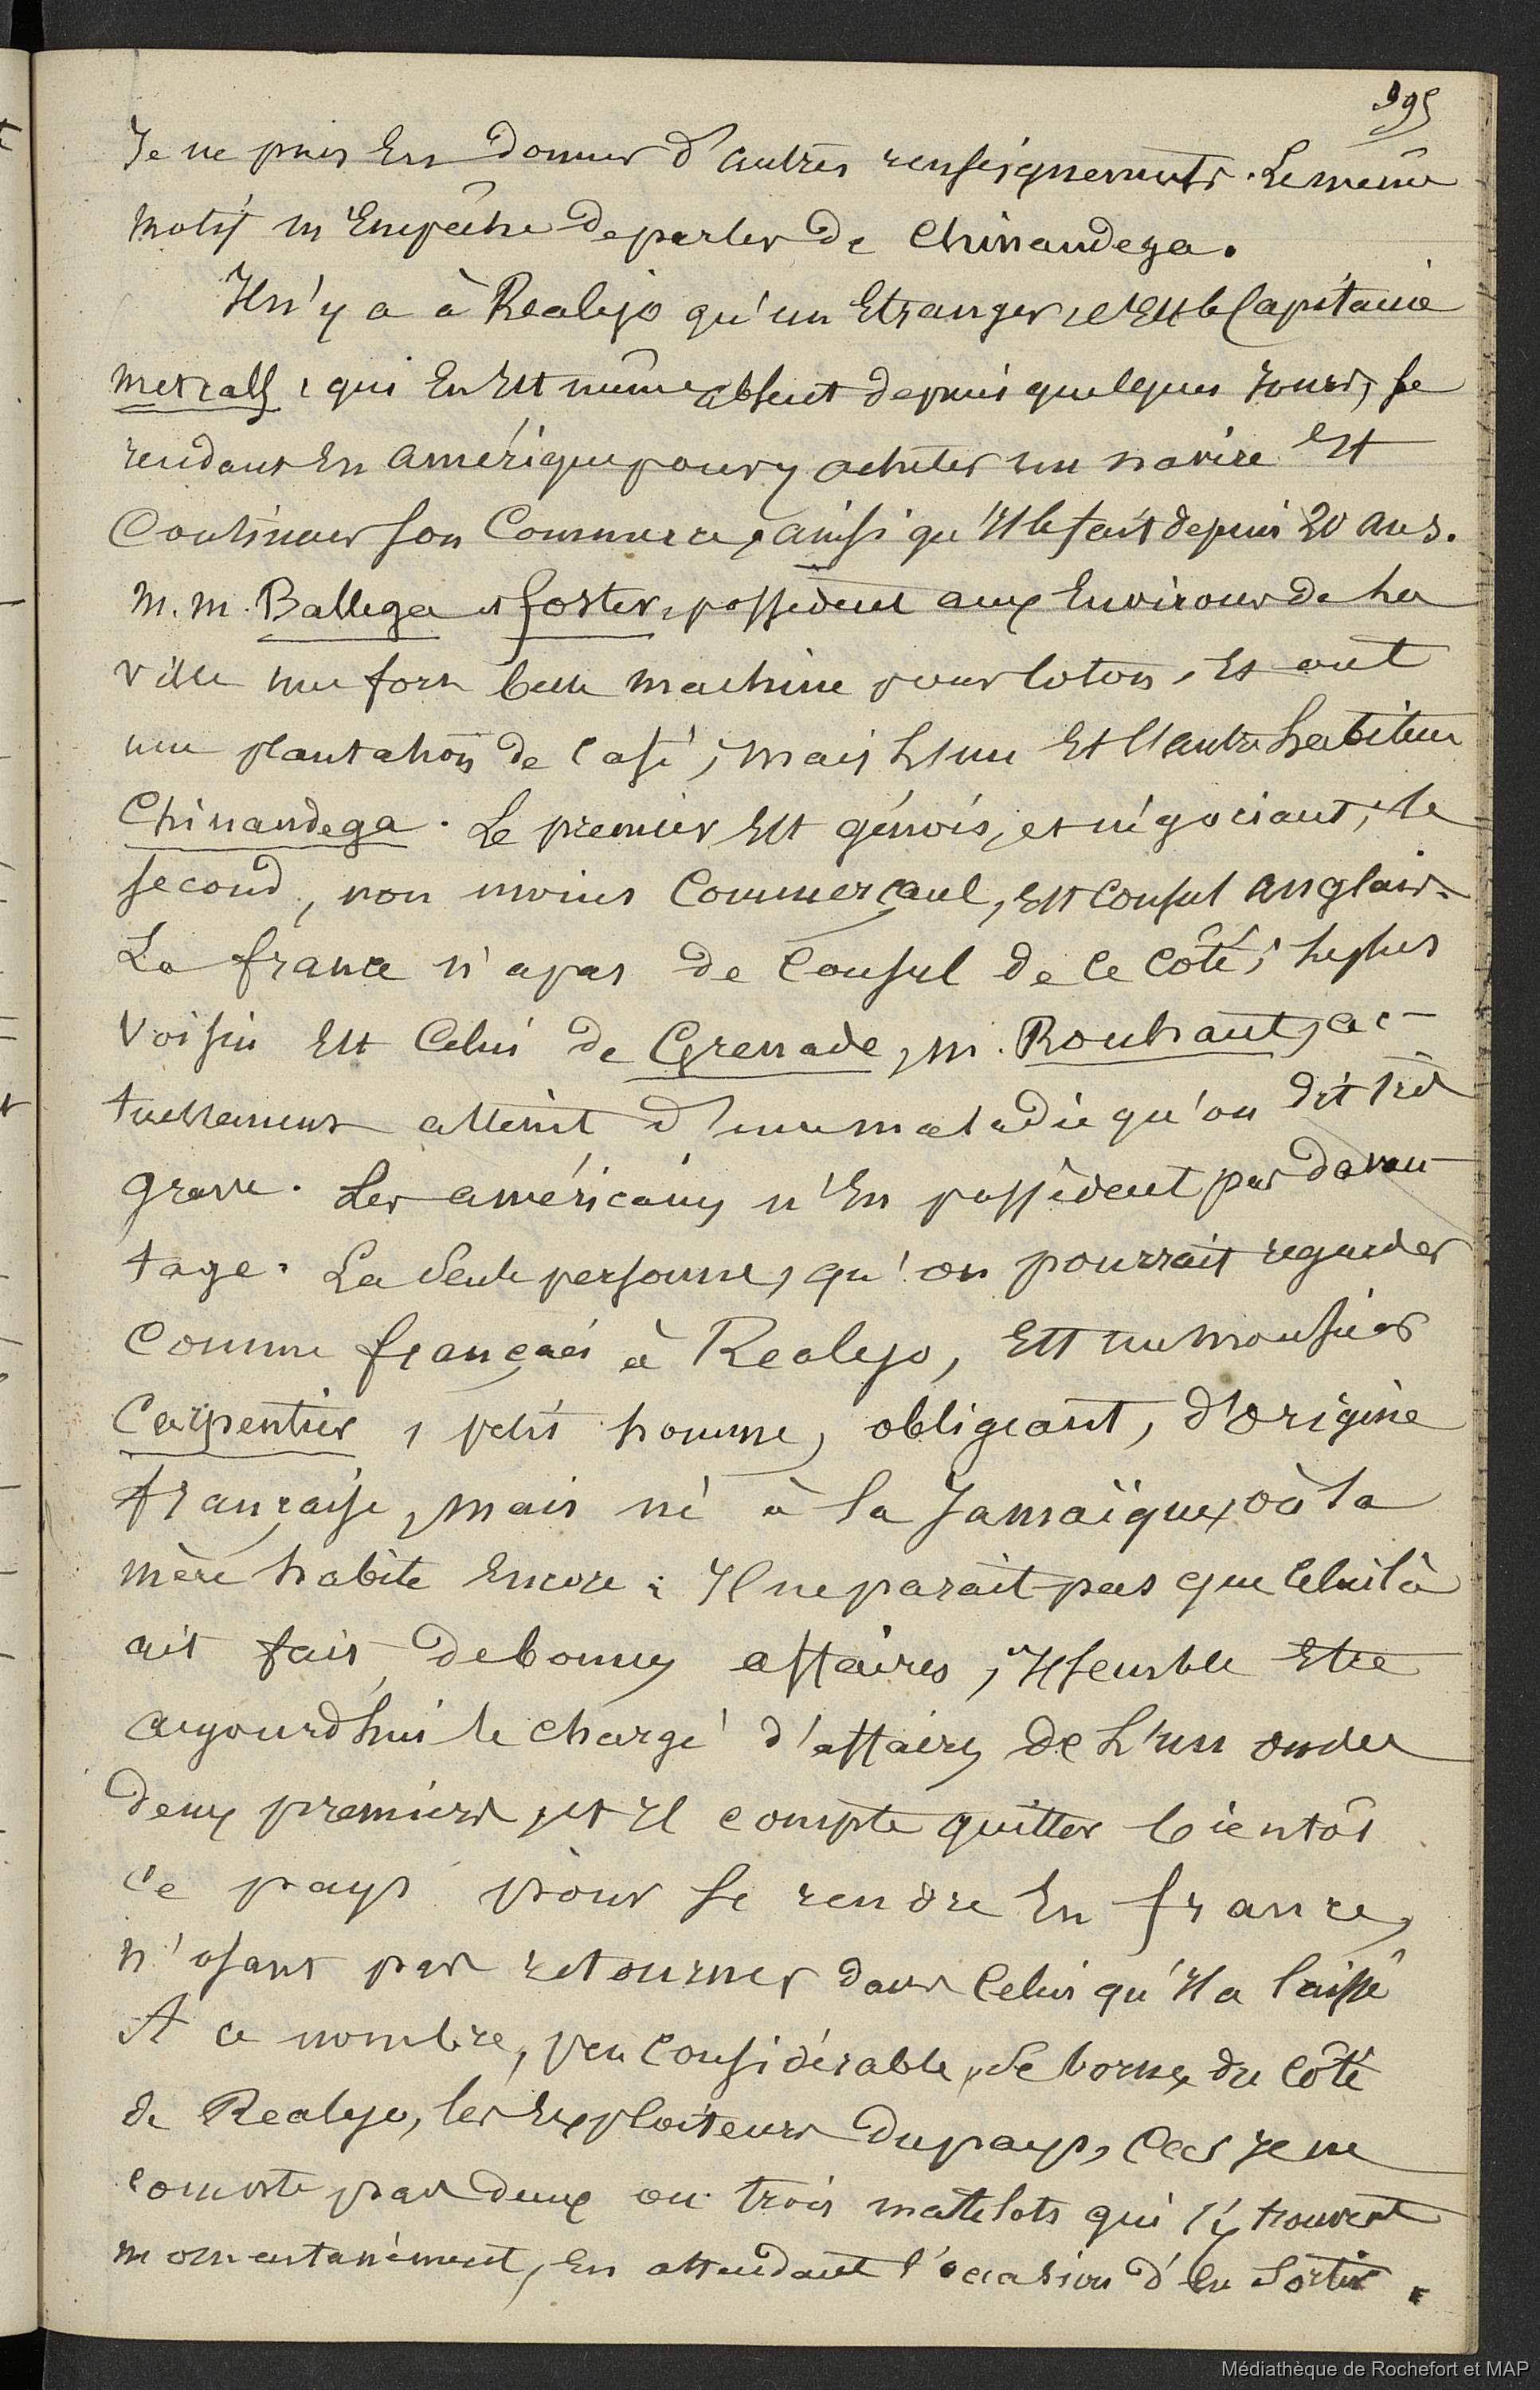 395
Je ne puis en donner d'autres renseignements. Le même
motif m'empêche de parler de Chinandega.
Il n'y a à Realejo qu'un Etranger, c'Est le Capitaine
Metcalf, qui en Est même absent depuis quelques jours, se
rendant en amérique pour y acheter un navire Et
Continuer son Commerce, ainsi qu'Il le fait depuis 20 ans.
M. M. Ballega et foster, possèdent aux Environs de la
ville une fort belle machine pour Coton, Et ont
une plantation de Café, mais L'un Et l'autre habitent
Chinandega. Le premier Est génois, et négociant, le
second, non moins Commerçant, Est Consul anglais.
La france n'a pas de Consul de ce Côté, le plus
Voisin Est Celui de Grenade, M. Rouhaut, ac-
tuellement atteint d'une maladie qu'on dit très
grave. Les américains n'En possèdent pas davan-
tage. La Seule personne, qu'on pourrait regarder
Comme français à Realejo, Est un monsieur
Carpentier, petit homme, obligeant, d'origine
française, mais né à la Jamaïque, où sa
mère habite Encore : Il ne parait pas que Celui là
ait fait de bonnes affaires, Il semble Etre
aujourd'hui le chargé d'affaires de L'un ou des
deux premiers, et Il compte quitter bientôt
Ce pays pour se rendre En france,
n'osant pas retourner dans Celui qu'Il a laissé
A ce nombre, peu Considérable, Se borne, du Côté
de Realejo, les Exploiteurs du pays, Car je ne
compte pas deux ou trois matelots qui s'y trouvent
momentanément, En attendant l'occasion d'En Sortir.
Médiathèque de Rochefort et MAP